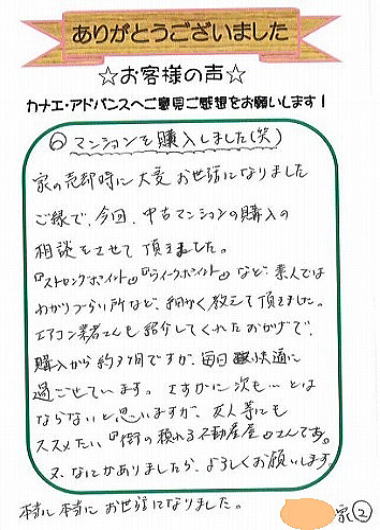 ありがとうございました
☆お客様の声☆
カナエ・アドバンスへご意見ご感想をお願いします！
◎ マンションを購入しました(笑)
家の売却時に大変お世話になりました
ご縁で、今回、中古マンションの購入の
相談をさせて頂きました。
『ストロングポイント』『ウィークポイント』など、素人では
わかりづらい所など、細かく教えて頂きました。
エアコン業者さんも紹介してくれたおかげで、
購入から約3ヶ月ですが、毎日快適に
過ごせています。さすがに次も…とは
ならないと思いますが、友人等にも
ススメたい『街の頼れる不動産屋』さんです。
又、なにかありましたら、よろしくお願いします。
本当に本当にお世話になりました。
家②